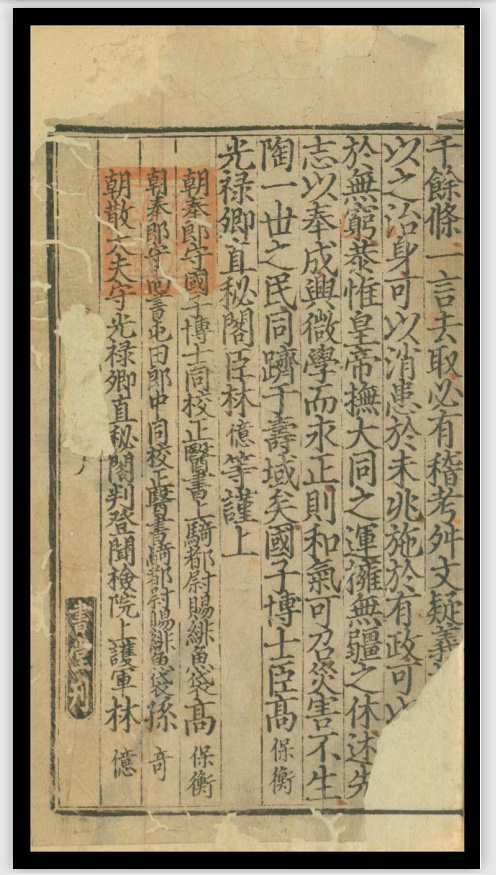 千餘條一言去取必有稽考舛文疑義
以之治身可以消患於未兆施於有政可以
於無窮恭惟皇帝撫大同之運擁無疆之休述先
志以奉成興微學而永正則和氣可召災害不生
陶一世之民同躋于壽域矣國子博士臣高保衡
光禄卿直秘閣臣林億等謹上
朝奉郎守國子博士同校正醫書上騎都尉賜緋魚袋高保衡
朝奉郎守尚書屯田郎中同校正醫書騎都尉賜緋魚袋孫奇
朝散大夫守光禄卿直秘閣判登聞檢院上護軍林億
書堂刊